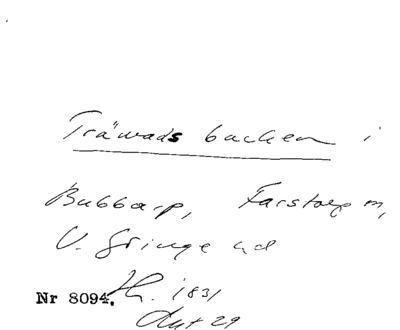 Träwads backen i
Bubbarp, Farstorp m,
V. Göinge hd
Nr 8094. Ht. 1831
Akt 29